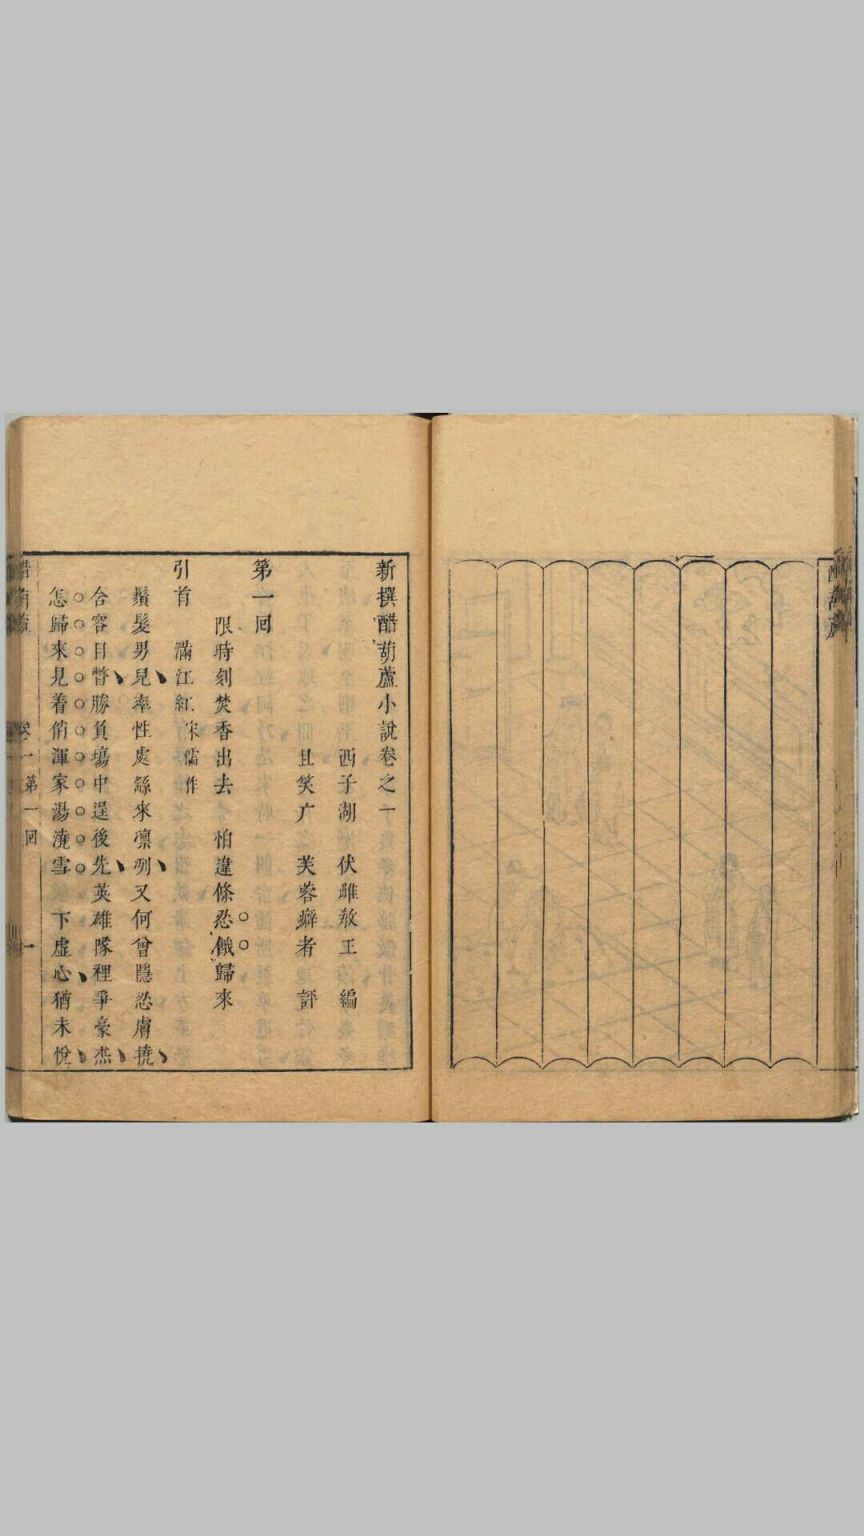 新撰醋葫蘆小說卷之一
西子湖伏雌教主編
且笑广芙蓉癖者評
第一回
限時刻焚香出去 怕違條忍餓歸來
引首 滿江紅 宋儒作
鬚髮男兒率性處繇來凜冽又何曾隱忍膚撓
含容目瞥勝負場中逞後先英雄隊裡爭豪杰
怎歸來見着俏渾家湯澆雪 下虛心猶未悅
卷一 第一回 一